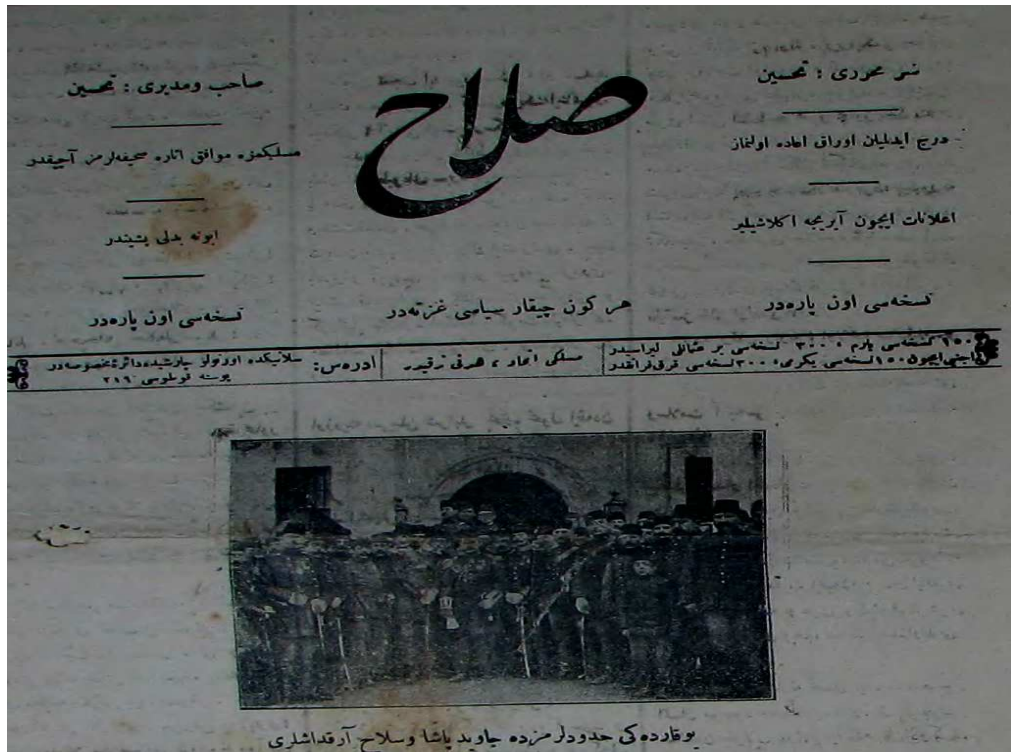 صلاح
سر محرری : تحسین
درج ایدلیان اوراق اعاده اولنماز
اعلانات ایچون آیریجه اکلاشیلیر
نسخه‌سی اون پاره‌در
صاحب ومدیری : تحسین
مسلکمزه موافق آثاره صحیفه‌لرمز آچیقدر
ابونه بدلی پشیندر
نسخه‌سی اون پاره‌در
هر کون چیقار سیاسی غزته‌در
١٥٠ نسخه‌سی یارم ، ٣٠٠ نسخه‌سی بر عثمانلی لیراسیدر
اجنبی ایچون ١٥٠ نسخه‌سی یکرمی، ٣٠٠ نسخه‌سی قرق فرانقدر
مسلکی اتحاد ، هدفی ترقیدر
آدرس:
سلانیکده اوزونلو چارشیده دائرهٔ مخصوصه‌در
پوسته قوطوسی ٢١٩
یوقارده‌کی حدودلرمزده جاوید پاشا وسلاح آرقداشلری